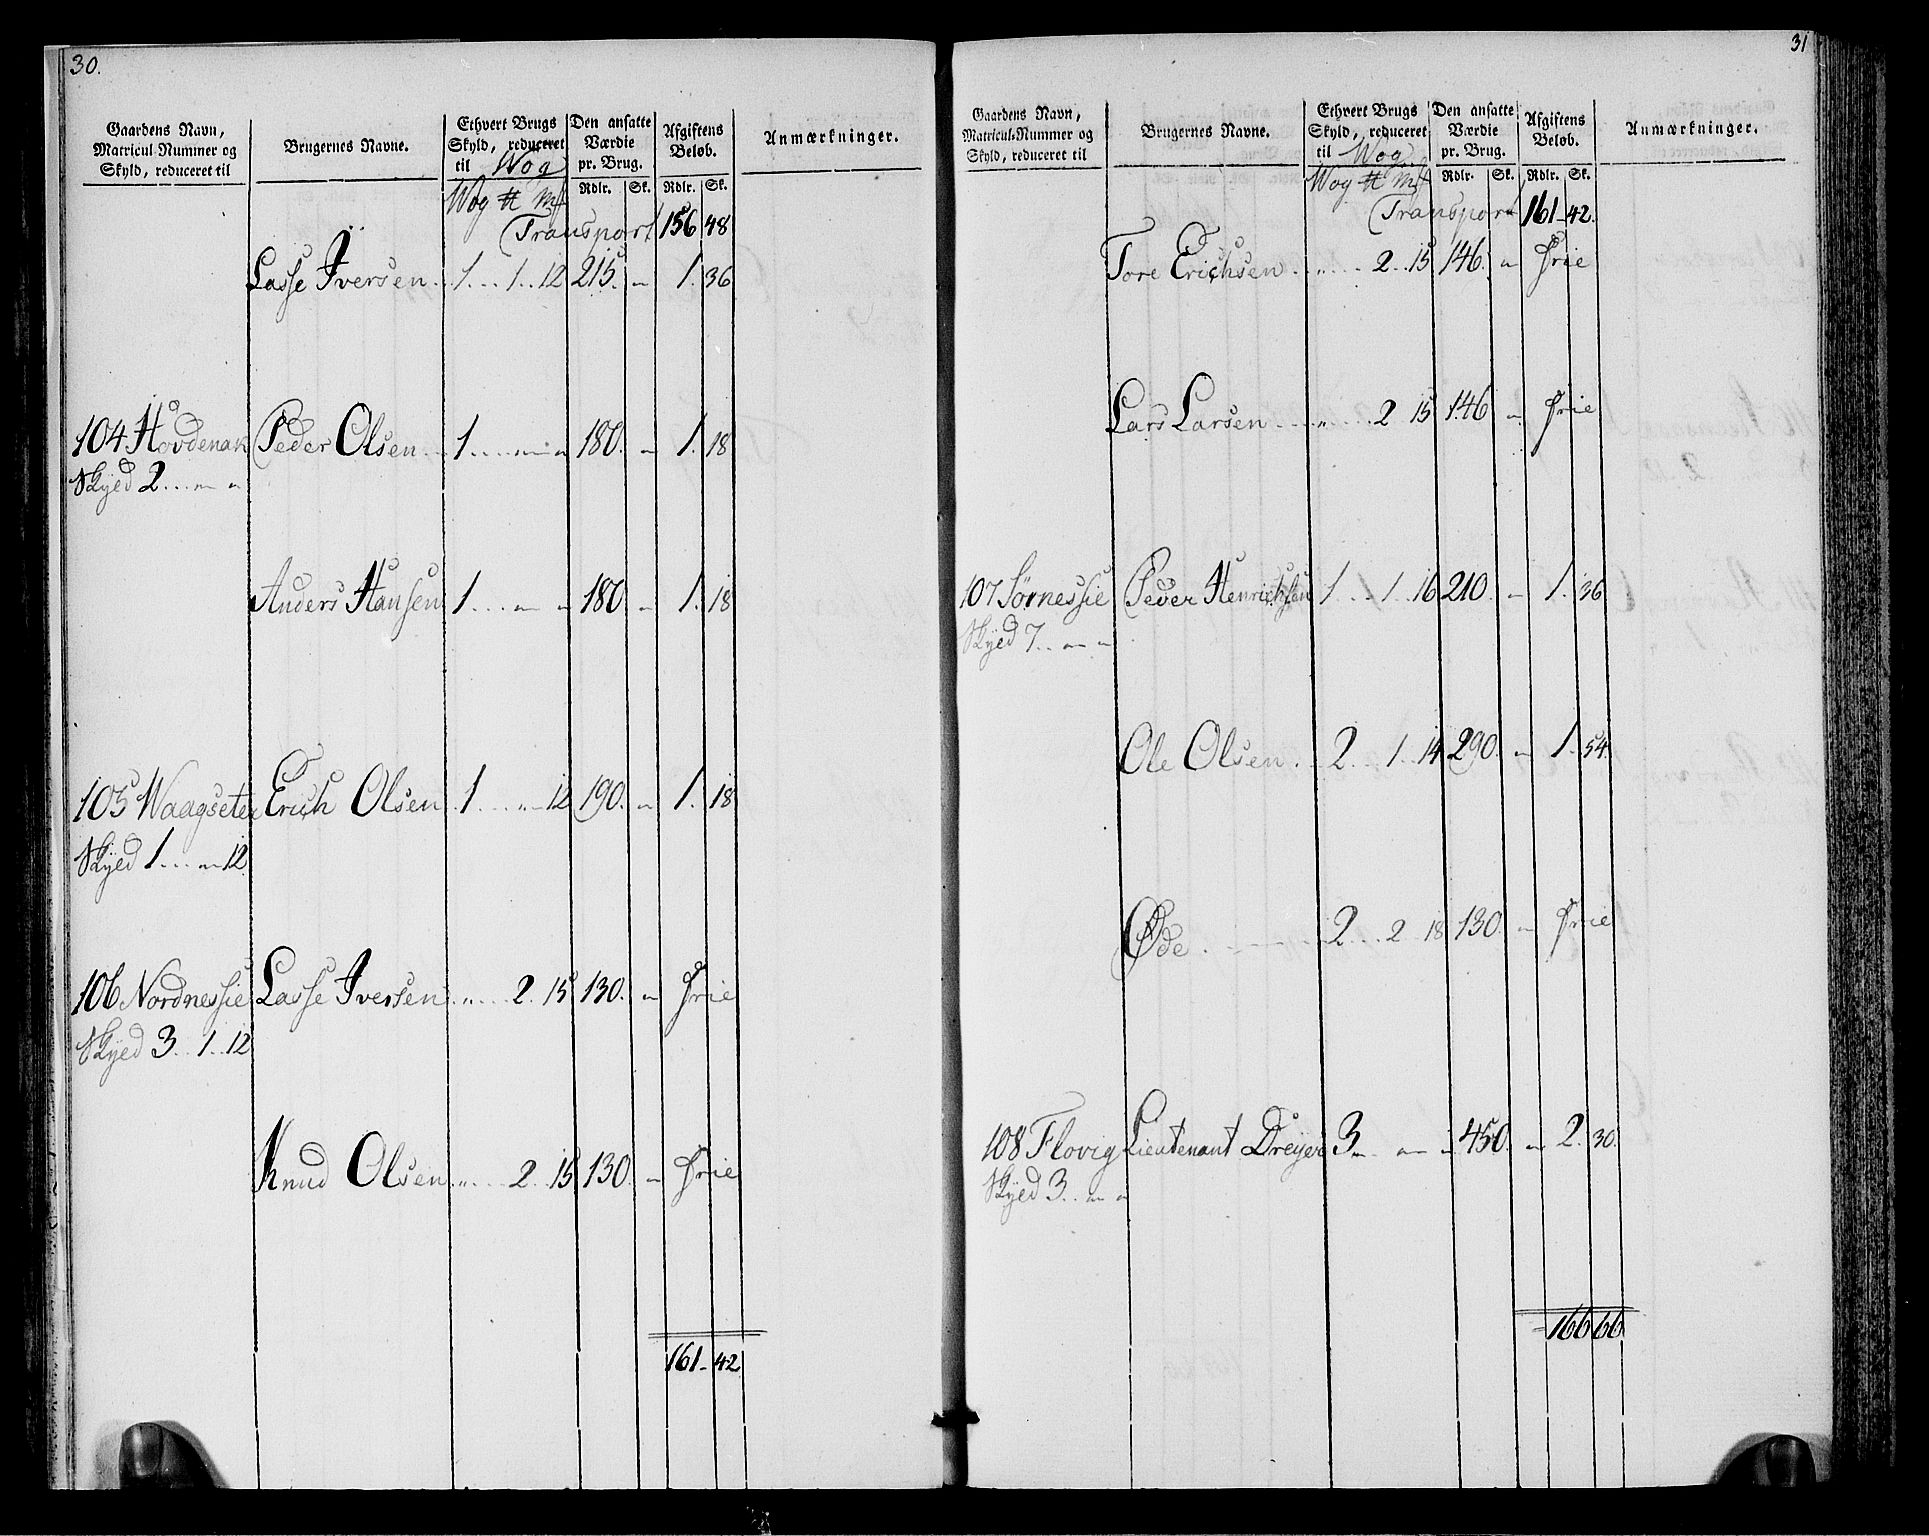 30.
Gaardens Navn, Matricul-Nummer og Skyld, reduceret til
Brugernes Navne.
Ethvert Brugs Skyld, reduceret til Wog
Den ansatte Værdie pr. Brug.
Afgiftens Beløb.
Anmærkninger.
Wog ℔ mk Rdlr. Sk. Rdlr. Sk.
Transport 156 48
Lasse Iversen 1 1 12 215. " 1. 36
104 Hovdenak Peder Olsen 1 " " 180. " 1. 18
Skyed 2 " "
Anders Hansen 1 " " 180 " 1. 18
105 Waagseter Erich Olsen 1 " 12 190. " 1. 18
Skyed 1 " 12
106 Nordnessie Lasse Iversen " 2. 15 130. " frie
Skyed 3. 1. 12
Knud Olsen " 2. 15 130. " frie
161. 42
31
Gaardens Navn, Matricul-Nummer og Skyld, reduceret til
Brugernes Navne.
Ethvert Brugs Skyld, reduceret til Wog
Den ansatte Værdie pr. Brug.
Afgiftens Beløb.
Anmærkninger.
Wog ℔ mk Rdlr. Sk. Rdlr. Sk.
Transport 161. 42.
Tore Erichsen " 2. 15 146. " frie
Lars Larsen " 2 15 146 " frie
107 Sørnessie Peder Henrichsen 1 1. 16 210. " 1. 36
Skyed 7. " "
Ole Olsen 2. 1. 14 290. " 1. 54
Øde 2. 2 18 130. " frie
108 Flovig Lieutenant Dreyer 3 " " 450. " 2. 30.
Skyed 3. " "
166 66